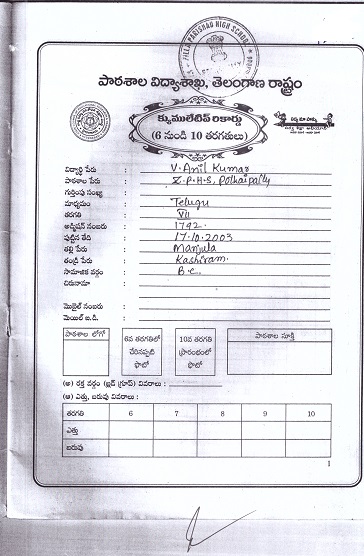 ZILLA PARISHAD HIGH SCHOOL
పాఠశాల విద్యాశాఖ, తెలంగాణ రాష్ట్రం
క్యుములేటివ్ రికార్డు
(6 నుండి 10 తరగతులు)
విద్యార్థి పేరు : V. Anil Kumar
పాఠశాల పేరు : Z.P.H.S. Pothaipally
గుర్తింపు సంఖ్య :
మాధ్యమం : Telugu
తరగతి : VII
అడ్మిషన్ నంబరు : 1742.
పుట్టిన తేది : 17.10.2003
తల్లి పేరు : Manjula
తండ్రి పేరు : Kashiram.
సామాజిక వర్గం : B.C.
చిరునామా :
మొబైల్ నంబరు :
మెయిల్ ఐ.డి. :
పాఠశాల లోగో
6వ తరగతిలో చేరినప్పటి ఫొటో
10వ తరగతి ప్రారంభంలో ఫొటో
పాఠశాల సూక్తి
(అ) రక్త వర్గం (బ్లడ్ గ్రూప్) వివరాలు :
(ఆ) ఎత్తు, బరువు వివరాలు :
తరగతి 6 7 8 9 10
ఎత్తు
బరువు
1